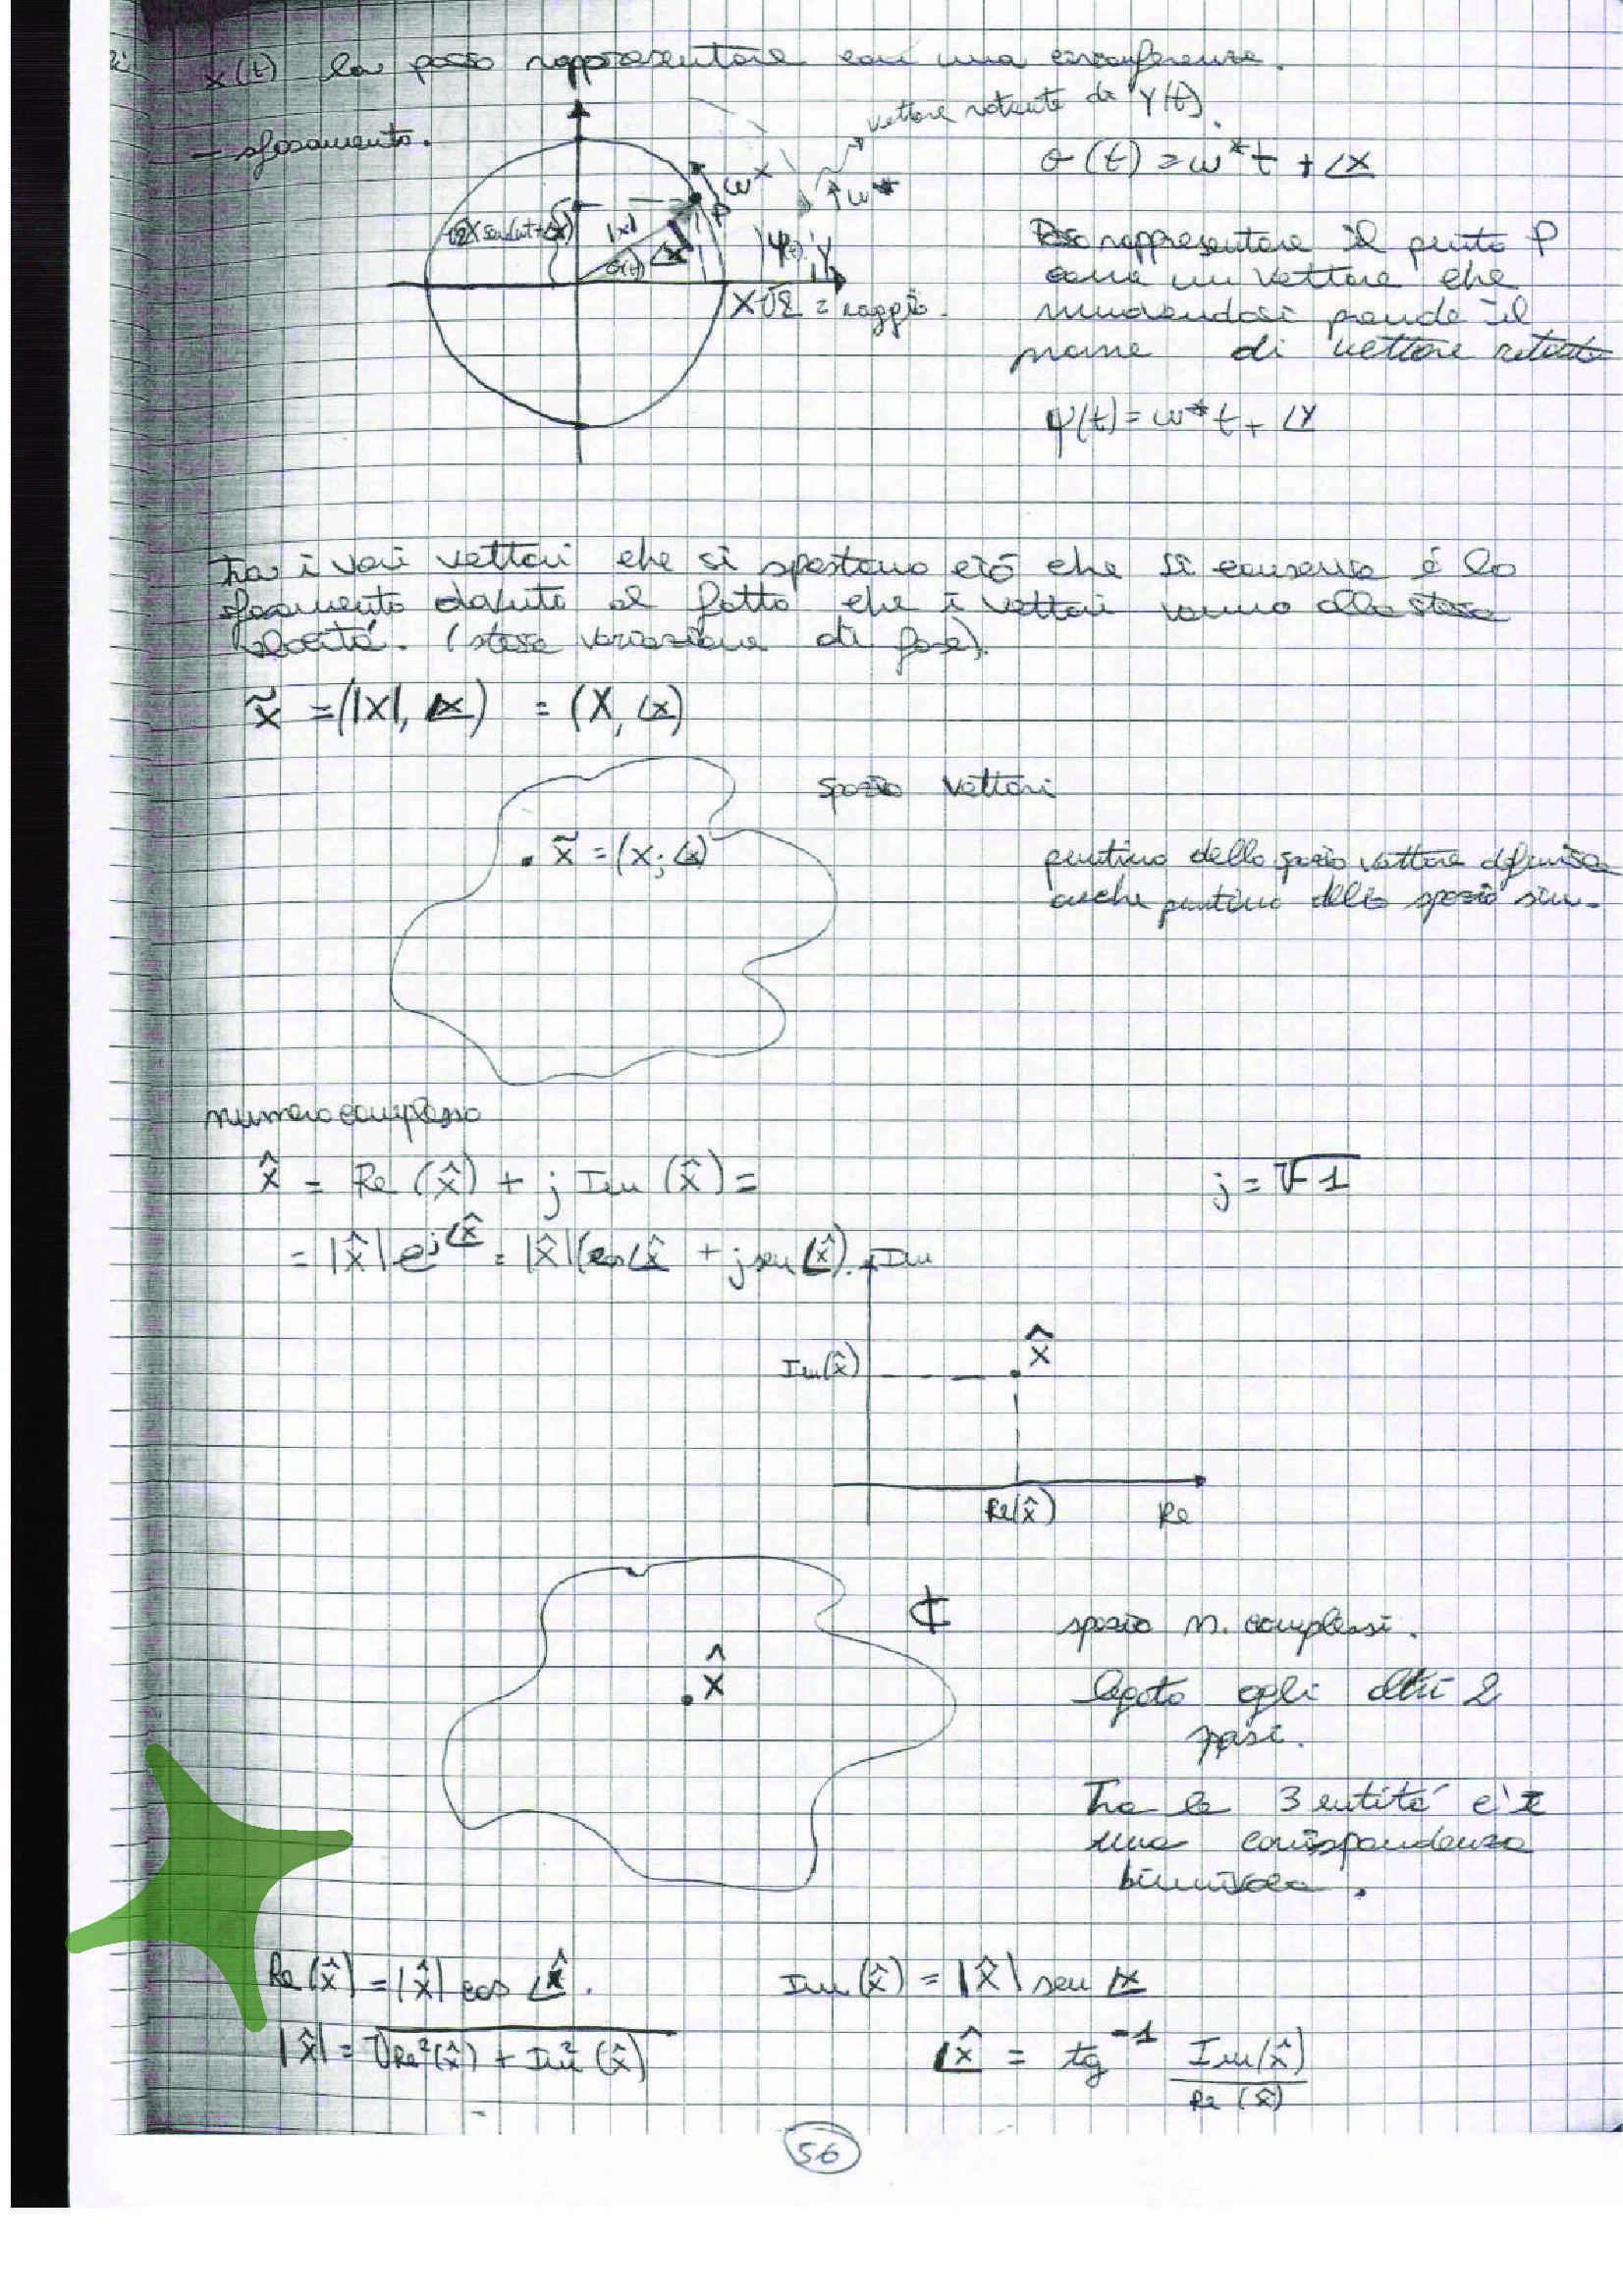 x(t) la posso rappresentare con una circonferenza.
- sfasamento.
vettore rotante di Y(t).
ω*
ω*
P
√2X sen(ωt+∠x)
|x|
θ(t)
∠x
ψ(t)
Y
X√2 = raggio.
θ(t) = ω*t + ∠x
Posso rappresentare il punto P
come un vettore che
muovendosi prende il
nome di vettore rotante
ψ(t) = ω*t + ∠Y
Tra i vari vettori che si spostano ciò che si conserva é lo
sfasamento dovuto al fatto che i vettori vanno alla stessa
velocità. (stessa variazione di fase).
x̃ = (|x|, ∠x) = (X, ∠x)
spazio vettori
. x̃ = (x; ∠x)
puntino dello spazio vettore definisce
anche puntino dello spazio sin.
numero complesso
x̂ = Re(x̂) + j Im(x̂) =
j = √-1
= |x̂| e^j∠x̂ = |x̂|(cos∠x̂ + j sen∠x̂).
Im
Im(x̂)
x̂
Re(x̂)
Re
ℂ
x̂
spazio n. complessi.
legato agli altri 2
spazi.
Tra le 3 entità c'è
una corrispondenza
biunivoca.
Re(x̂) = |x̂| cos ∠x̂.
Im(x̂) = |x̂| sen ∠x
|x̂| = √Re²(x̂) + Im²(x̂)
∠x̂ = tg⁻¹ Im(x̂)/Re(x̂)
56